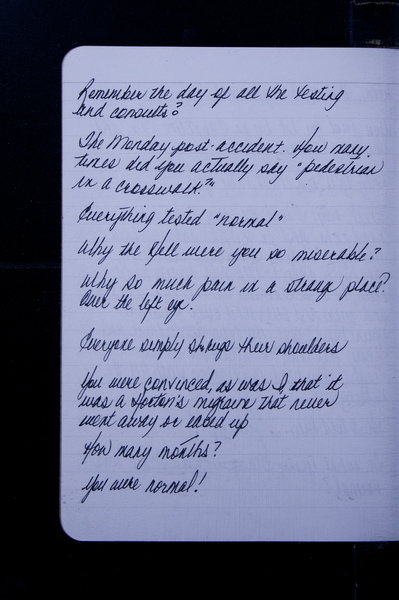 Remember the day of all the testing
and consults?
The Monday post-accident. How many
times did you actually say "pedestrian
in a crosswalk?"
Everything tested "normal"
Why the Hell were you so miserable?
Why so much pain in a strange place?
Over the left eye.
Everyone simply shrugs their shoulders
You were convinced, as was I, that it
was a Horton's migraine that never
went away or eased up
How many months?
You were normal!